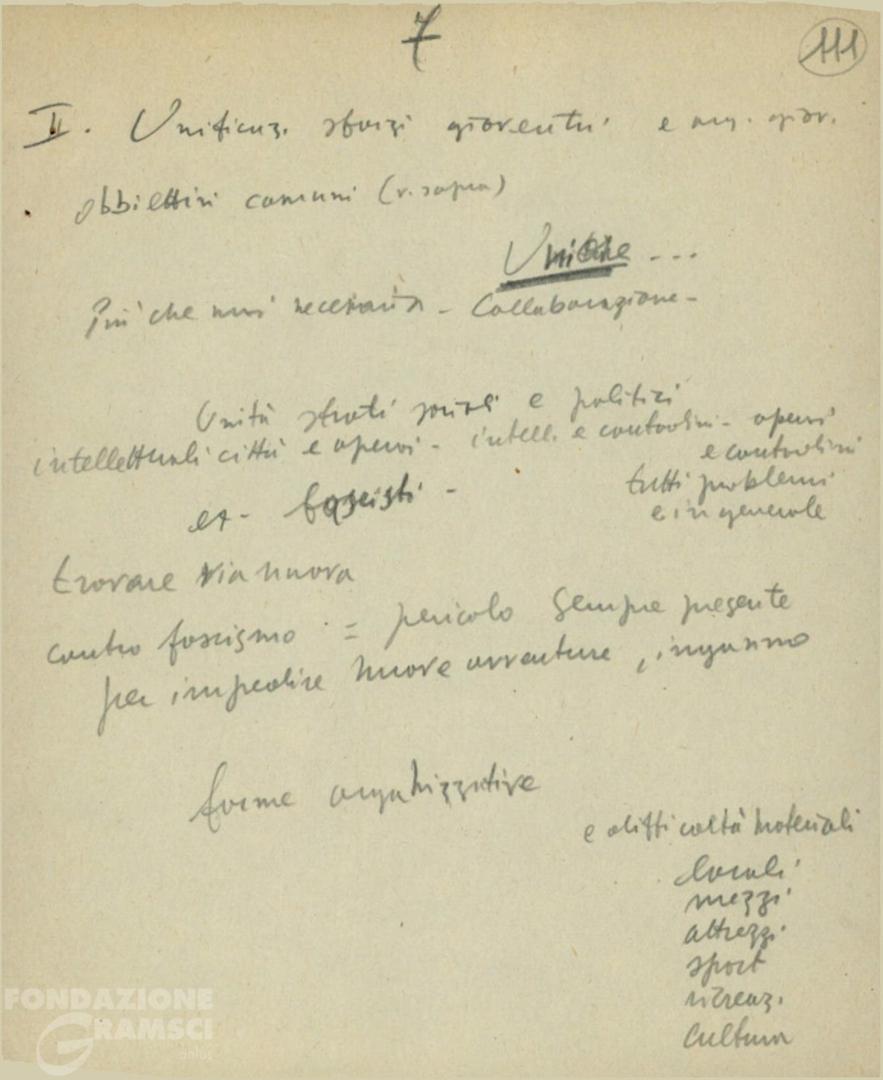 7
111
II. Unificaz. sforzi gioventù e org. giov.
obbiettivi comuni (v. sopra)
Unione ...
Più che mai necessaria - Collaborazione -
Unità strati sociali e politici
intellettuali città e operai - intell. e contadini - operai
e contadini
ex - fascisti -
tutti problemi
e in generale
trovare via nuova
contro fascismo = pericolo sempre presente
per impedire nuove avventure, inganno
forme organizzative
e difficoltà materiali
locali
mezzi
attrezzi
sport
ricreaz.
cultura
FONDAZIONE
GRAMSCI
onlus